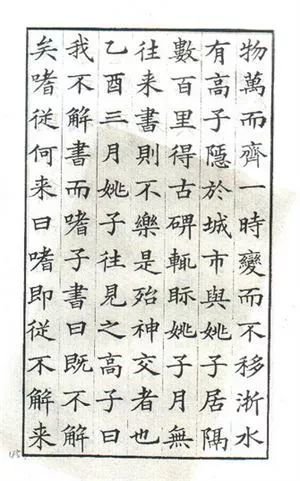 物萬而齊一時變而不移淅水
有高子隱於城市與姚子居隔
數百里得古碑輒眎姚子月無
往来書則不樂是殆神交者也
乙酉三月姚子往見之高子曰
我不解書而嗜子書曰既不解
矣嗜從何来曰嗜即從不解来